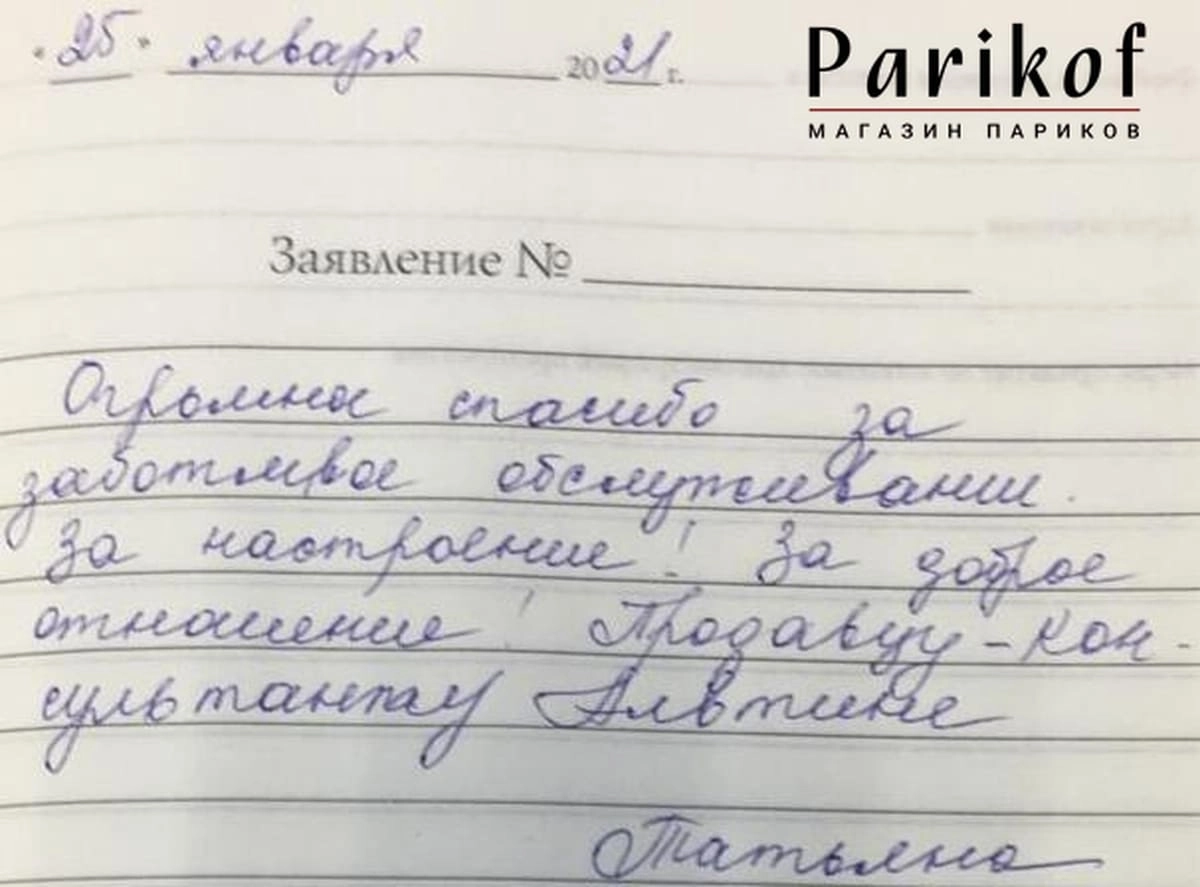 « 25 » января 2021 г.
Parikof
МАГАЗИН ПАРИКОВ
Заявление №
Огромное спасибо за
заботливое обслуживание.
За настроение! За доброе
отношение! Продавцу-кон-
сультанту Альтине
Татьяна